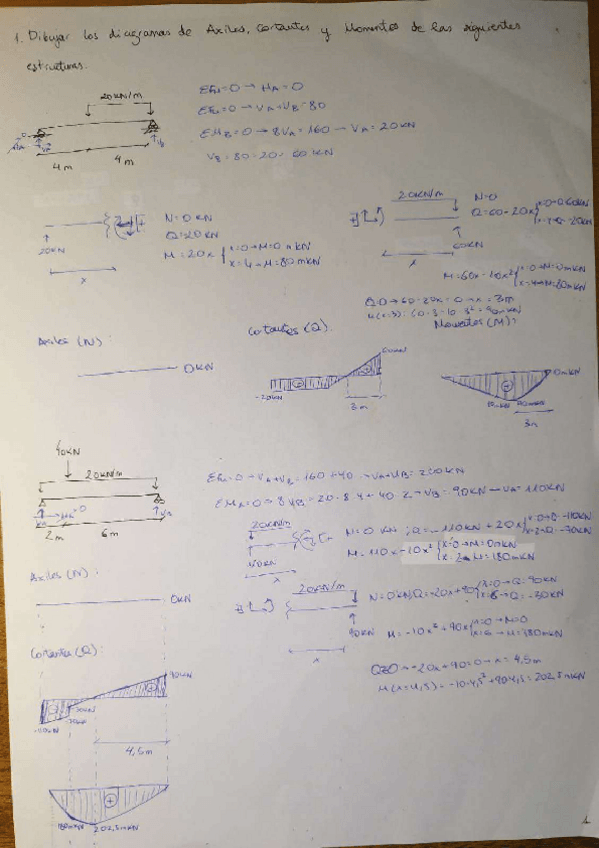 1. Dibujar los diagramas de Axiles, Cortantes y Momentos de las siguientes
estructuras.
20kN/m
4m 4m
ΣFH=0 → HA=0
ΣFV=0 → VA+VB=80
ΣMB=0 → 8VA=160 → VA=20KN
VB=80-20=60KN
20KN
x
N=0KN
Q=20KN
M=20x { x=0→M=0mKN
x=4→M=80mKN
20KN/m
60KN
x
N=0
Q=60-20x
M=60x-10x² { x=0→M=0mKN
x=4→M=80mKN
Q=0→60-20x=0→x=3m
M(x=3)=60·3-10·3²=90mKN
Axiles (N):
0KN
Cortantes (Q):
-20KN
60KN
3m
Momentos (M):
0mKN
80mKN 90mKN
3m
40KN
20KN/m
2m 6m
ΣFV=0→VA+VB=160+40→VA+VB=200KN
ΣMA=0→8VB=20·8·4+40·2→VB=90KN→VA=110KN
20KN/m
110KN
x
N=0KN; Q=-110KN+20x { x=0→Q=-110KN
x=2→Q=-70KN
M=110x-10x² { x=0→M=0mKN
x=2→M=180mKN
Axiles (N):
0KN
20KN/m
90KN
x
N=0KN; Q=-20x+90 { x=0→Q=90KN
x=6→Q=-30KN
M=-10x²+90x { x=0→M=0
x=6→M=180mKN
Q=0→-20x+90=0→x=4,5m
M(x=4,5)=-10·4,5²+90·4,5=202,5mKN
Cortantes (Q):
90KN
-30KN
-70KN
-110KN
4,5m
180mKN 202,5mKN
1